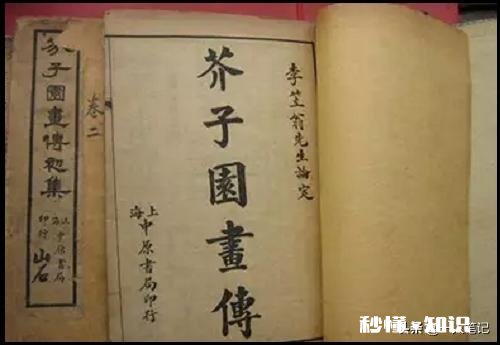 李笠翁先生論定
芥子園畫傳
上海中原書局印行
卷二
芥子園畫傳初集
上海中原書局印行
山石
秒懂·知识
笔记